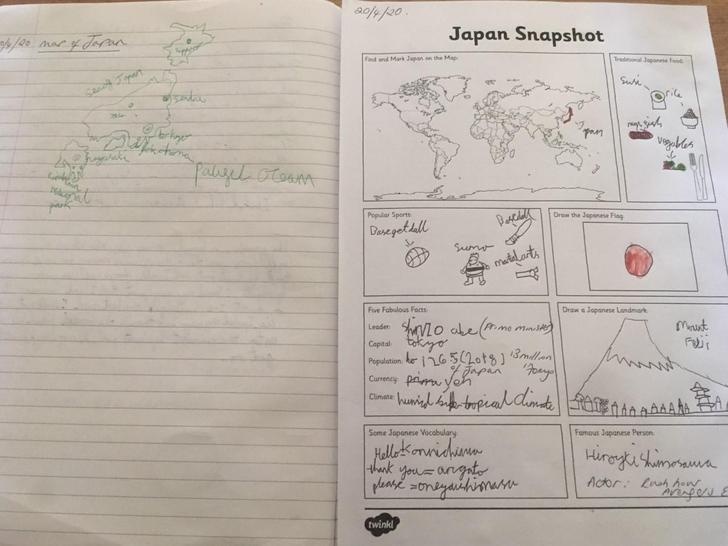 20/4/20 map of Japan
sapporo
sea of Japan
sendai
tokyo
yokohama
nagasaki
national
park
20/4/20.
Japan Snapshot
Find and Mark Japan on the Map:
Japan
Traditional Japanese Food:
Susi
rice
raw fish
vegables
Popular Sports:
Basegetball
Sumo
Baseball
martal arts
Draw the Japanese Flag
Five Fabulous Facts:
Leader: Shinzo abe (Prime minister)
Capital: tokyo
Population: 126.5 (2018) 13 million
of Japan Tokyo
Currency: yen
Climate: humid sub-tropical climate
Draw a Japanese Landmark:
Mount
Fuji
Some Japanese Vocabulary:
Hello Konnichiwa
thank you = arigato
please = oneyaishimasu
Famous Japanese Person:
Actor: Rush hour
Avengers E
twinkl